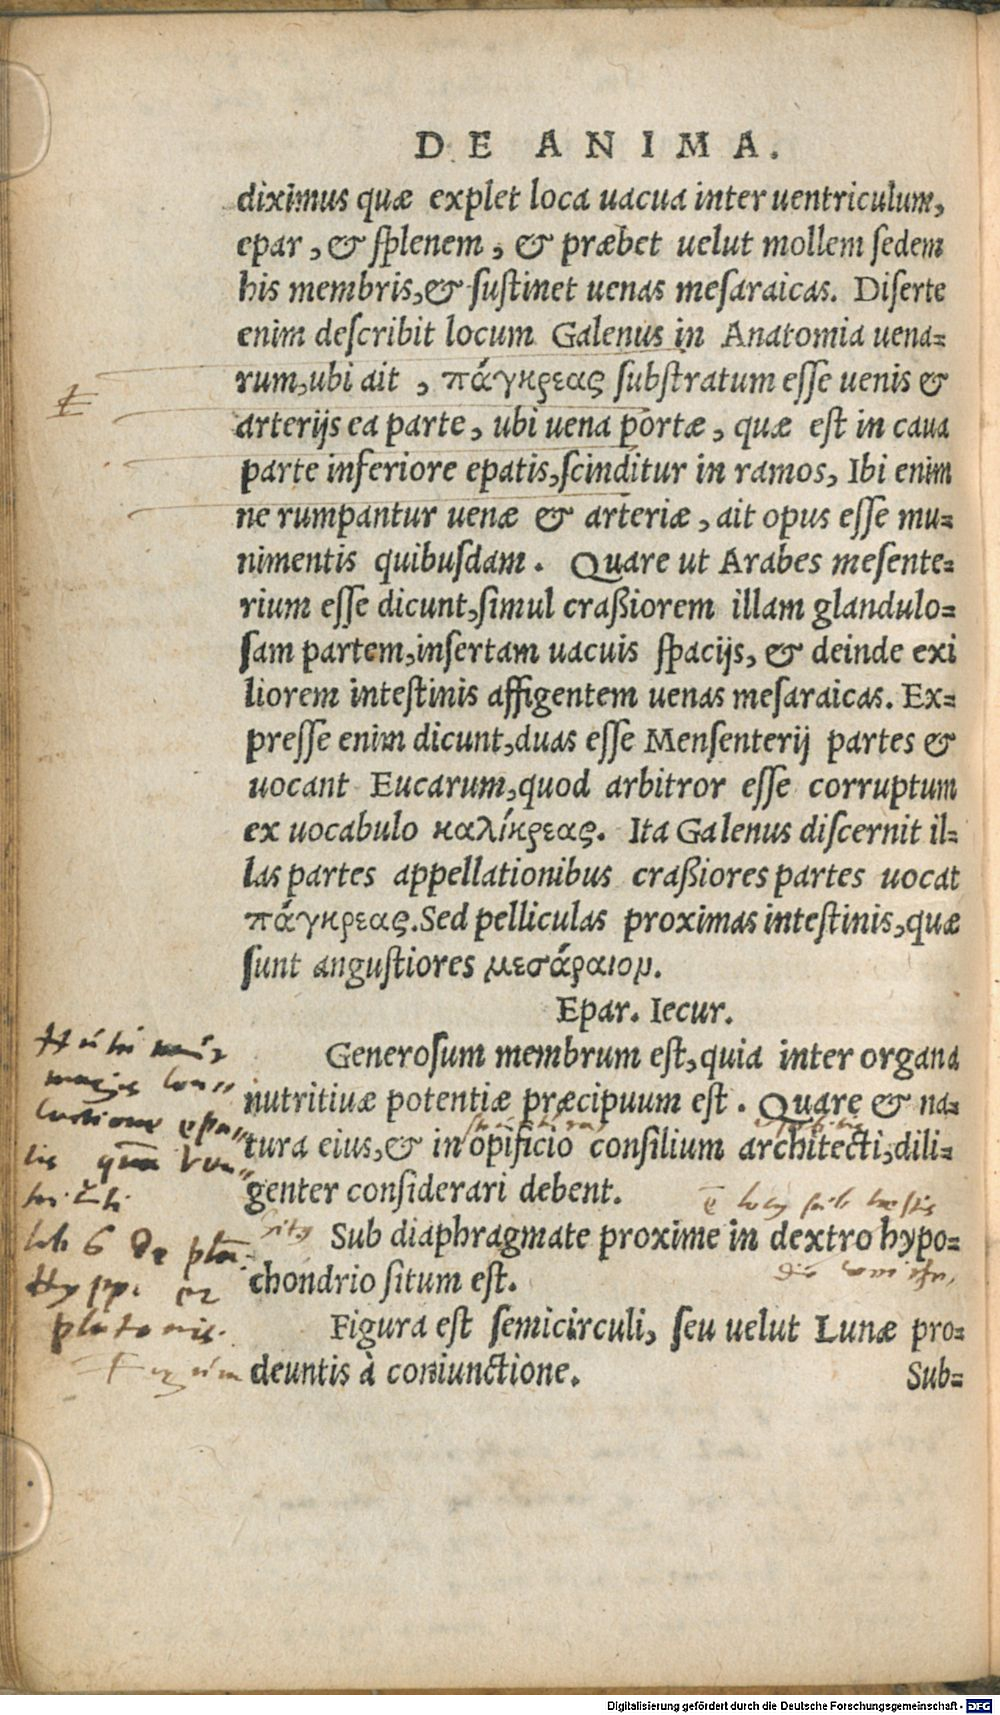 DE ANIMA.
diximus quæ explet loca uacua inter uentriculum,
epar, & splenem, & præbet uelut mollem sedem
his membris, & sustinet uenas mesaraicas. Diserte
enim describit locum Galenus in Anatomia uena-
rum, ubi ait, πάγκρεας substratum esse uenis &
arterijs ea parte, ubi uena portæ, quæ est in caua
parte inferiore epatis, scinditur in ramos, Ibi enim
ne rumpantur uenæ & arteriæ, ait opus esse mu-
nimentis quibusdam. Quare ut Arabes mesente-
rium esse dicunt, simul craßiorem illam glandulo-
sam partem, insertam uacuis spacijs, & deinde exi
liorem intestinis affigentem uenas mesaraicas. Ex-
presse enim dicunt, duas esse Mensenterij partes &
uocant Eucarum, quod arbitror esse corruptum
ex uocabulo καλίκρεας. Ita Galenus discernit il-
las partes appellationibus craßiores partes uocat
πάγκρεας. Sed pelliculas proximas intestinis, quæ
sunt angustiores μεσάραιον.
Epar. Iecur.
Generosum membrum est, quia inter organa
nutritiuæ potentiæ præcipuum est. Quare & na-
tura eius, & in opificio consilium architecti, dili-
genter considerari debent.
Sub diaphragmate proxime in dextro hypo-
chondrio situm est.
Figura est semicirculi, seu uelut Lunæ pro-
deuntis à coniunctione.
Sub-
lib 6 De
Hypp. et
platonis.
Digitalisierung gefördert durch die Deutsche Forschungsgemeinschaft - DFG